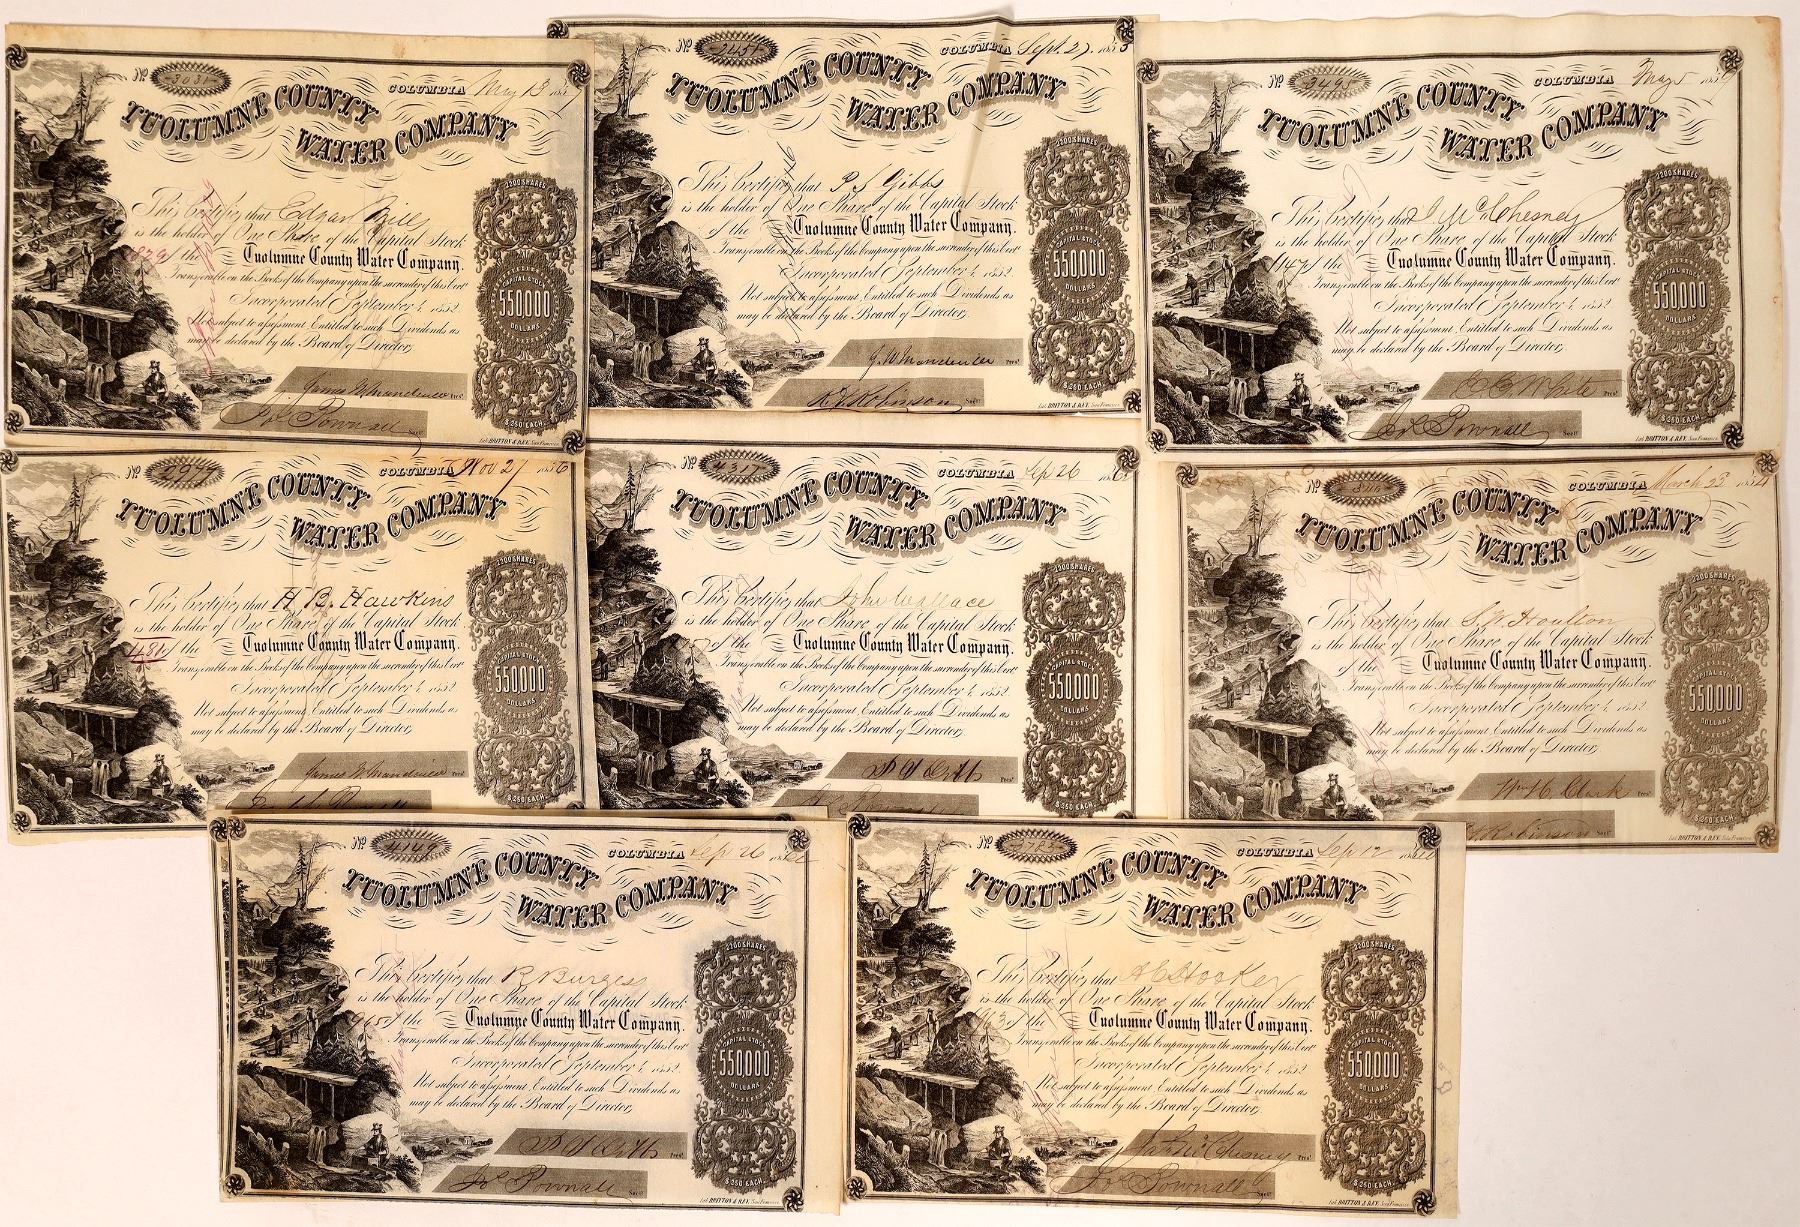 No 3031 COLUMBIA May 13 185
TUOLUMNE COUNTY
WATER COMPANY
2200 SHARES
This Certifies that Edgar Mills
is the holder of One Share of the Capital Stock
of the Tuolumne County Water Company.
Transferable on the Books of the Company upon the surrender of this Cert.
Incorporated September 4, 1852
Not subject to assessment. Entitled to such Dividends as
may be declared by the Board of Directors
CAPITAL STOCK
550,000
DOLLARS
$250 EACH.
James W. Mandeville Prest
Jos Pownall Secy
Lith. BRITTON & REY. San Francisco
No 2451 COLUMBIA Sept. 27 1855
TUOLUMNE COUNTY
WATER COMPANY
2200 SHARES
This Certifies that P S Gibbs
is the holder of One Share of the Capital Stock
of the Tuolumne County Water Company.
Transferable on the Books of the Company upon the surrender of this Cert.
Incorporated September 4, 1852
Not subject to assessment. Entitled to such Dividends as
may be declared by the Board of Directors
CAPITAL STOCK
550,000
DOLLARS
$250 EACH.
J. W. Mandeville Prest
Robinson Secy
Lith. BRITTON & REY. San Francisco
No COLUMBIA May 185
TUOLUMNE COUNTY
WATER COMPANY
2200 SHARES
This Certifies that McChesney
is the holder of One Share of the Capital Stock
1147 of the Tuolumne County Water Company.
Transferable on the Books of the Company upon the surrender of this Cert.
Incorporated September 4, 1852
Not subject to assessment. Entitled to such Dividends as
may be declared by the Board of Directors
CAPITAL STOCK
550,000
DOLLARS
$250 EACH.
White Prest
Jos Pownall Secy
Lith. BRITTON & REY. San Francisco
No COLUMBIA Nov 27 1856
TUOLUMNE COUNTY
WATER COMPANY
2200 SHARES
This Certifies that H B. Hawkins
is the holder of One Share of the Capital Stock
481 of the Tuolumne County Water Company.
Transferable on the Books of the Company upon the surrender of this Cert.
Incorporated September 4, 1852
Not subject to assessment. Entitled to such Dividends as
may be declared by the Board of Directors
CAPITAL STOCK
550,000
DOLLARS
$250 EACH.
James W. Mandeville Prest
No 4317 COLUMBIA Sep 26 186
TUOLUMNE COUNTY
WATER COMPANY
2200 SHARES
This Certifies that John Wallace
is the holder of One Share of the Capital Stock
of the Tuolumne County Water Company.
Transferable on the Books of the Company upon the surrender of this Cert.
Incorporated September 4, 1852
Not subject to assessment. Entitled to such Dividends as
may be declared by the Board of Directors
CAPITAL STOCK
550,000
DOLLARS
$250 EACH.
Prest
No COLUMBIA March 23 1854
TUOLUMNE COUNTY
WATER COMPANY
2200 SHARES
This Certifies that S. N. Houlton
is the holder of One Share of the Capital Stock
of the Tuolumne County Water Company.
Transferable on the Books of the Company upon the surrender of this Cert.
Incorporated September 4, 1852
Not subject to assessment. Entitled to such Dividends as
may be declared by the Board of Directors
CAPITAL STOCK
550,000
DOLLARS
$250 EACH.
Wm H. Clark Prest
Robinson Secy
Lith. BRITTON & REY. San Francisco
No 4149 COLUMBIA Sep 26 186
TUOLUMNE COUNTY
WATER COMPANY
2200 SHARES
This Certifies that B Burges
is the holder of One Share of the Capital Stock
965 of the Tuolumne County Water Company.
Transferable on the Books of the Company upon the surrender of this Cert.
Incorporated September 4, 1852
Not subject to assessment. Entitled to such Dividends as
may be declared by the Board of Directors
CAPITAL STOCK
550,000
DOLLARS
$250 EACH.
Prest
Jos Pownall Secy
Lith. BRITTON & REY. San Francisco
No COLUMBIA Sep 12 186
TUOLUMNE COUNTY
WATER COMPANY
2200 SHARES
This Certifies that A C Hooker
is the holder of One Share of the Capital Stock
of the Tuolumne County Water Company.
Transferable on the Books of the Company upon the surrender of this Cert.
Incorporated September 4, 1852
Not subject to assessment. Entitled to such Dividends as
may be declared by the Board of Directors
CAPITAL STOCK
550,000
DOLLARS
$250 EACH.
McChesney Prest
Jos Pownall Secy
Lith. BRITTON & REY. San Francisco